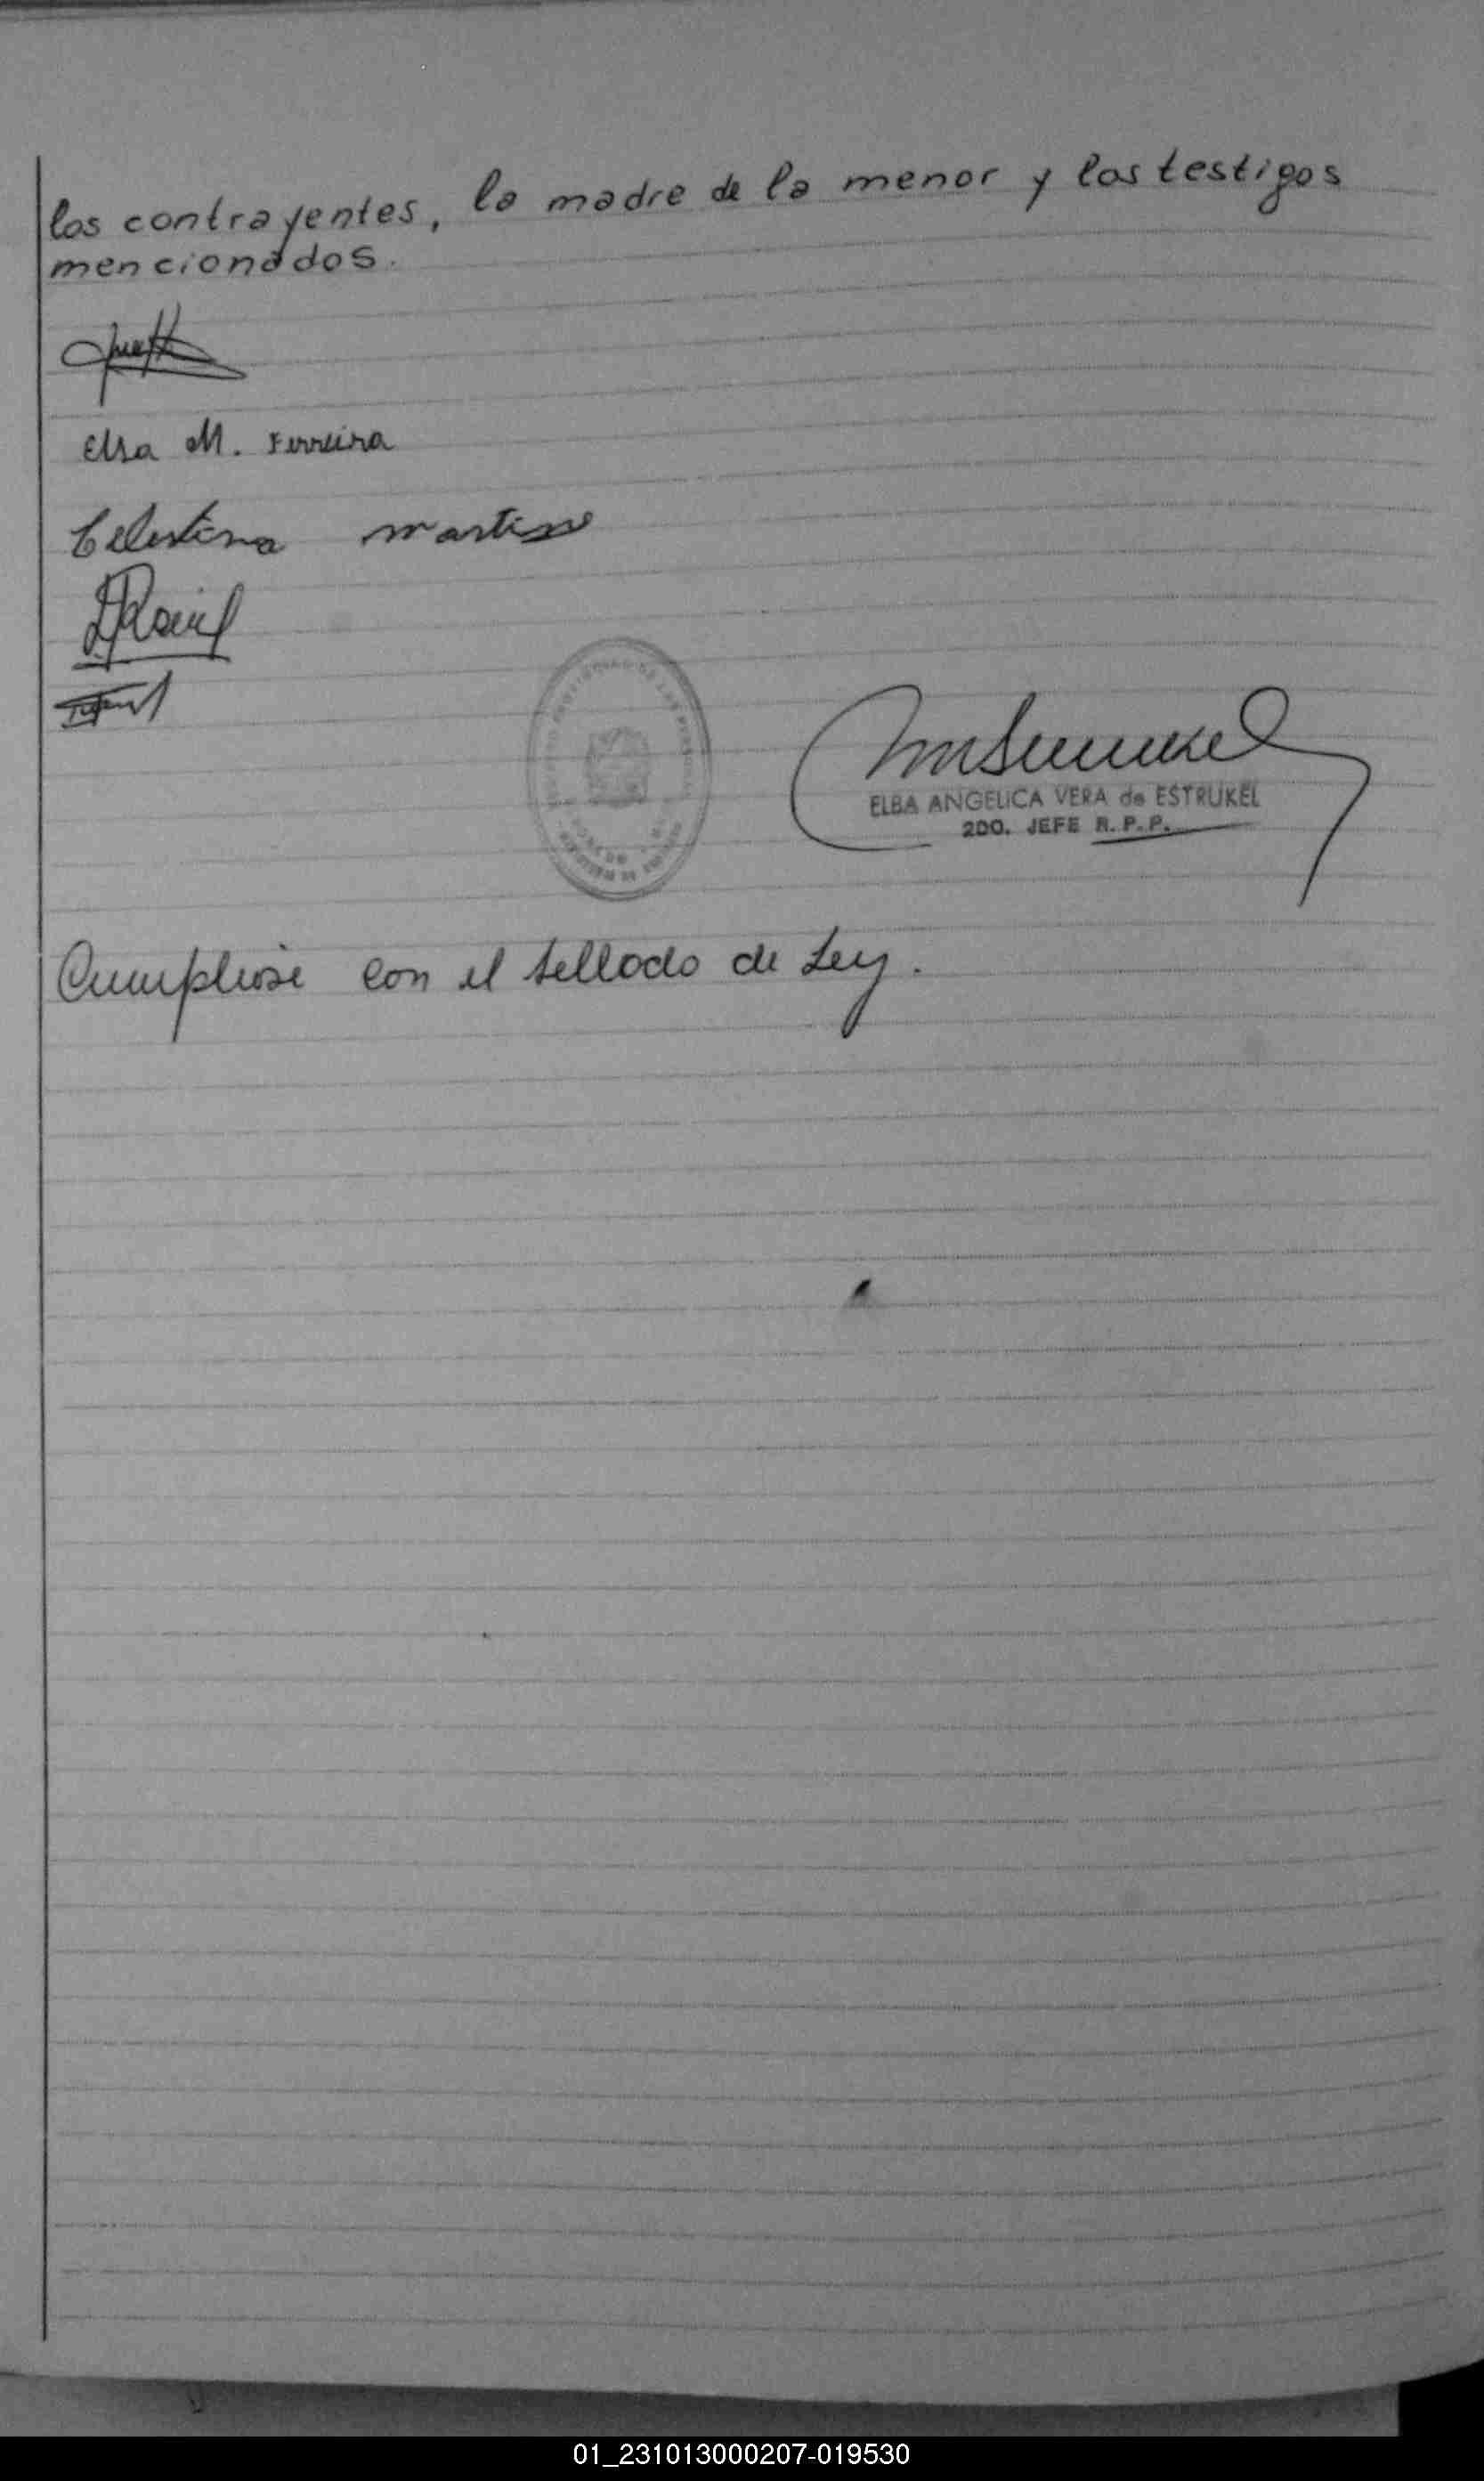 los contrayentes, la madre de la menor y los testigos
mencionados.
Elsa M. Ferreira
Celestina Martinez
ELBA ANGELICA VERA de ESTRUKEL
2DO. JEFE R.P.P.
Cumpliose con el sellado de Ley.
01_231013000207-019530